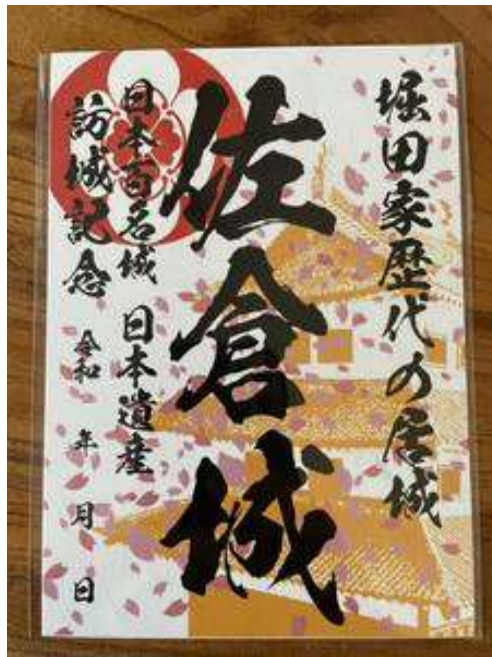 堀田家歴代の居城
佐倉城
日本百名城 日本遺産
訪城記念 令和 年 月 日